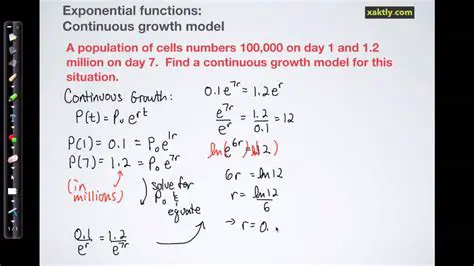 Exponential functions:
Continuous growth model
xaktly.com
A population of cells numbers 100,000 on day 1 and 1.2
million on day 7. Find a continuous growth model for this
situation.
Continuous Growth:
P(t) = P₀ e^{rt}
P(1) = 0.1 = P₀ e^{1r}
P(7) = 1.2 = P₀ e^{7r}
(in
millions)
solve for
P₀ &
equate
0.1/e^r = 1.2/e^{7r}
0.1e^{7r} = 1.2e^r
e^{7r}/e^r = 1.2/0.1 = 12
ln(e^{6r}) = ln(12)
6r = ln12
r = ln12/6
→ r = 0.